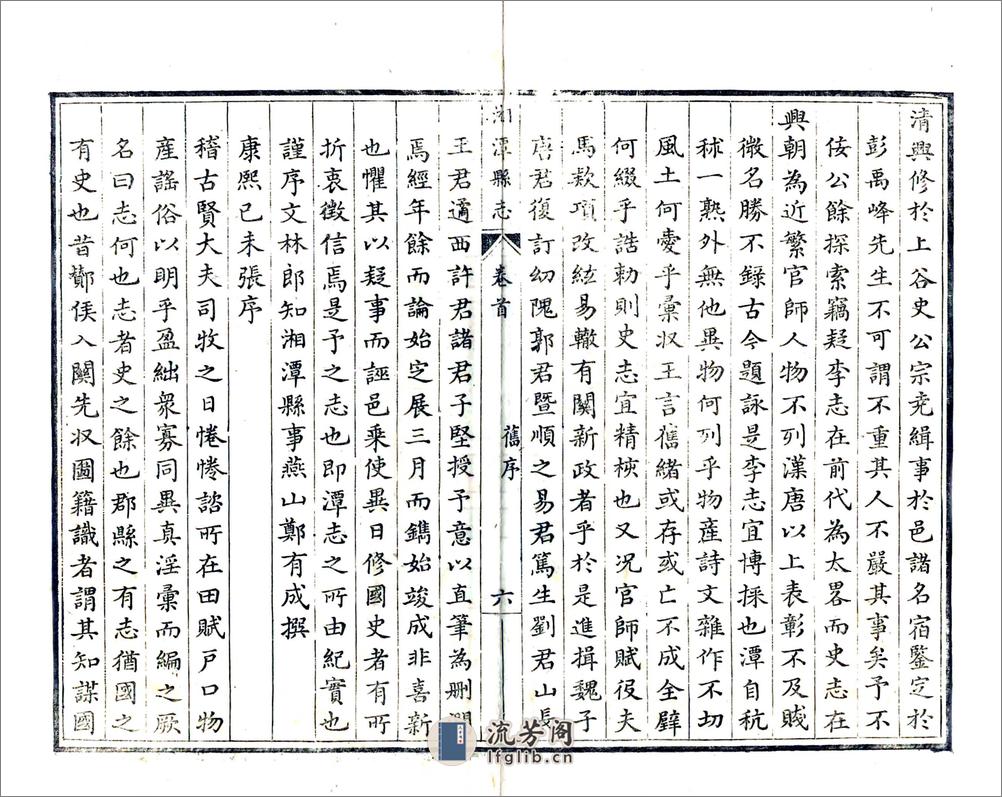 清興修於上谷史公宗尭緝事於邑諸名宿鑒定於
彭禹峰先生不可謂不重其人不嚴其事矣予不
佞公餘探索竊疑李志在前代為太畧而史志在
興朝為近繁官師人物不列漢唐以上表彰不及賤
微名勝不錄古今題詠是李志宜博採也潭自秔
秫一熟外無他異物何列乎物產詩文雜作不切
風土何臺乎彙収王言舊緒或存或亡不成全璧
何綴乎誥勅則史志宜精核也又況官師賦役夫
馬款項改絃易轍有關新政者乎於是進揖魏子
唐君復訂幼隗郭君暨順之易君篤生劉君山長
湘潭縣志 卷首 舊序 六
王君邇西許君諸君子堅授予意以直筆為刪潤
焉經年餘而論始定展三月而鐫始竣成非喜新
也懼其以疑事而誣邑乘使異日修國史者有所
折衷徵信焉是予之志也即潭志之所由紀實也
謹序文林郎知湘潭縣事燕山鄭有成撰
康熙己未張序
稽古賢大夫司牧之日惓惓諮所在田賦戶口物
產謠俗以明乎盈絀衆寡同異真淫彙而編之厥
名曰志何也志者史之餘也郡縣之有志猶國之
有史也昔酇侯入關先収圖籍識者謂其知謀國
流芳阁
lfglib.cn